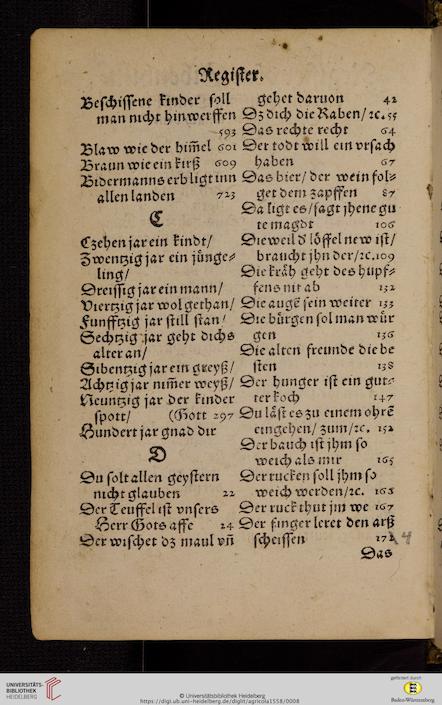 Register.
Beschissene kinder soll
man nicht hinwerffen
593
Blaw wie der him̄el 601
Braun wie ein kirß 609
Bidermanns erb ligt inn
allen landen 723
C
Czehen jar ein kindt/
Zwentzig jar ein jünge⸗
ling/
Dreissig jar ein mann/
Viertzig jar wol gethan/
Funfftzig jar still stan/
Sechtzig jar geht dichs
alter an/
Sibentzig jar ein greyß/
Achtzig jar nim̄er weyß/
Neuntzig jar der kinder
spott/ (Gott 297
Hundert jar gnad dir
D
Du solt allen geystern
nicht glauben 22
Der Teuffel ist vnsers
Herr Gots affe 24
Der wischet dz maul vn̄
gehet daruon 42
Dz dich die Raben/ ꝛc. 55
Das rechte recht 64
Der todt will ein vrsach
haben 67
Das bier/ der wein fol⸗
get dem zapffen 87
Da ligt es/ sagt jhene gu
te magdt 106
Die weil d' löffel new ist/
braucht jhn der/ꝛc. 109
Die kräh geht des hupf⸗
fens nit ab 132
Die augē sein weiter 133
Die bürgen sol man wür
gen 136
Die alten freunde die be
sten 138
Der hunger ist ein gut⸗
ter koch 147
Du läst es zu einem ohrē
eingehen/ zum/ꝛc. 152
Der bauch ist jhm so
weich als mir 165
Der rucken soll jhm so
weich werden/ꝛc. 165
Der ruck thut jm we 167
Der finger leret den arß
scheissen
Das
UNIVERSITÄTS-
BIBLIOTHEK
HEIDELBERG
© Universitätsbibliothek Heidelberg
https://digi.ub.uni-heidelberg.de/diglit/agricola1558/0008
gefördert durch
Baden-Württemberg